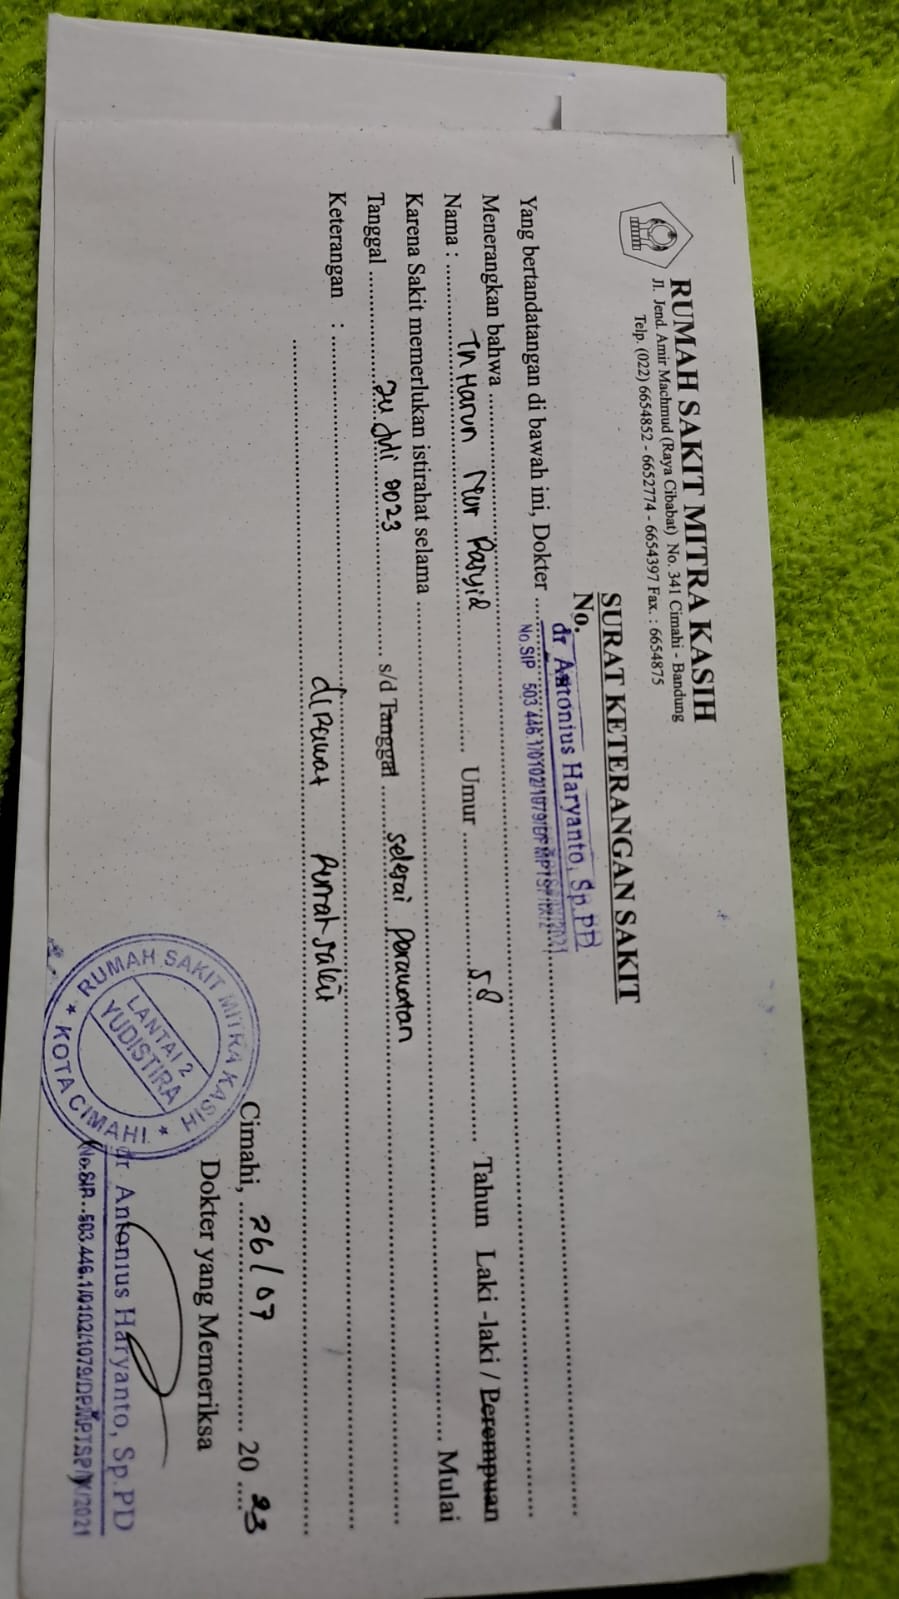 RUMAH SAKIT MITRA KASIH
Jl. Jend. Amir Machmud (Raya Cibabat) No. 341 Cimahi - Bandung
Telp. (022) 6654852 - 6652774 - 6654397 Fax. : 6654875
SURAT KETERANGAN SAKIT
No.
Yang bertandatangan di bawah ini, Dokter dr Antonius Haryanto, Sp.PD
No.SIP 503.446.1/0102/1079/DPMPTSP/IX/2021
Menerangkan bahwa
Nama : Tn Harun Nur Rasyid Umur 58 Tahun Laki -laki / Perempuan
Karena Sakit memerlukan istirahat selama Mulai
Tanggal Juli 2023 s/d Tanggal selesai perawatan
Keterangan :
dirawat Rumah sakit
Cimahi, 26/07 2023
Dokter yang Memeriksa
RUMAH SAKIT MITRA KASIH
LANTAI 2
YUDISTIRA
* KOTA CIMAHI *
dr Antonius Haryanto, Sp.PD
No.SIP. 503.446.1/0102/1079/DPMPTSP/IX/2021